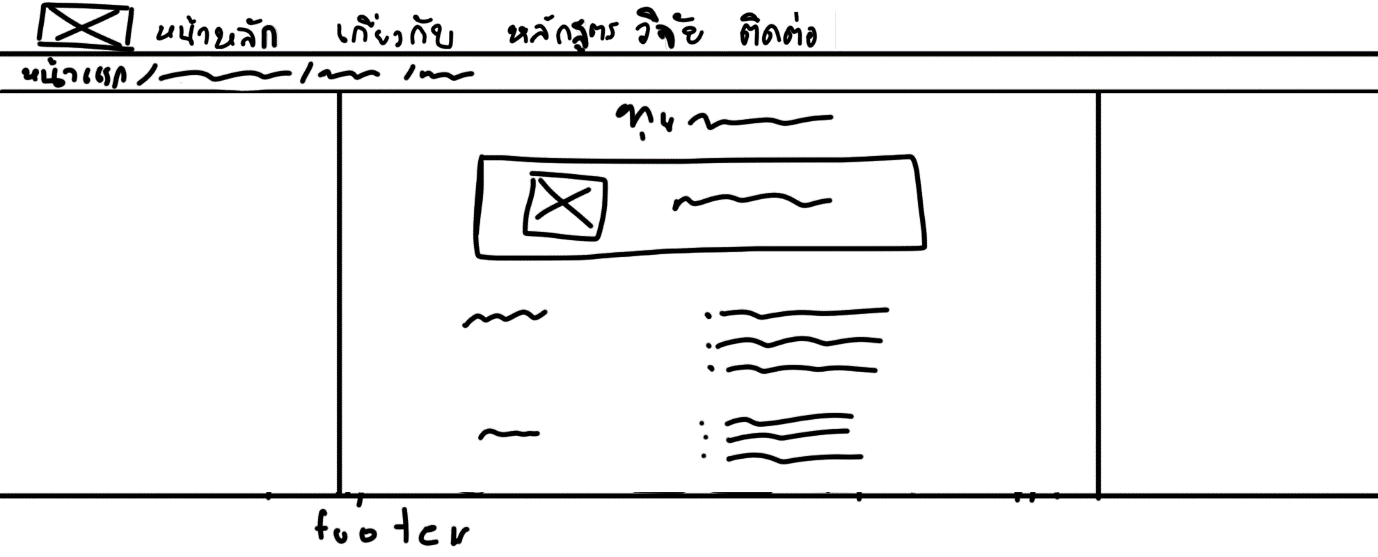 หน้าหลัก เกี่ยวกับ หลักสูตร วิจัย ติดต่อ
หน้าแรก / / /
ทุน
footer